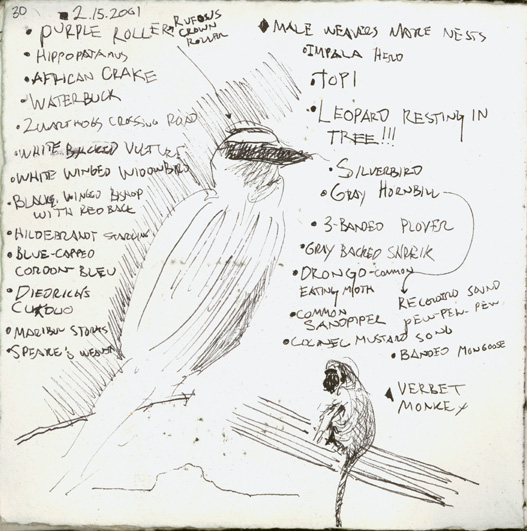 30
2.15.2001
PURPLE ROLLER
RUFOUS
CROWN
ROLLER
HIPPOPATAMUS
AFRICAN CRAKE
WATERBUCK
2 WARTHOGS CROSSING ROAD
WHITE BACKED VULTURE
WHITE WINGED WIDOWBIRD
BLACK WINGED BISHOP
WITH RED BACK
HILDEBRANDT STARLING
BLUE-CAPPED
CORDON-BLEU
DIEDRICK'S
CUCKOO
MARIBU STORKS
SPEAKE'S WEAVER
MALE WEAVERS MAKE NESTS
IMPALA HERD
TOPI
LEOPARD RESTING IN
TREE!!!
SILVERBIRD
GRAY HORNBILL
3-BANDED PLOVER
GRAY BACKED SHRIK
DRONGO-COMMON
EATING MOTH
RECORDED SOUND
PEW-PEW-PEW
COMMON
SANDPIPER
COLONEL MUSTARD SONG
BANDED MONGOOSE
VERBET
MONKEY